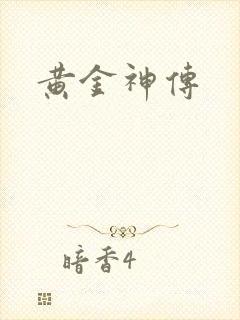 黄金神傳
暗香4